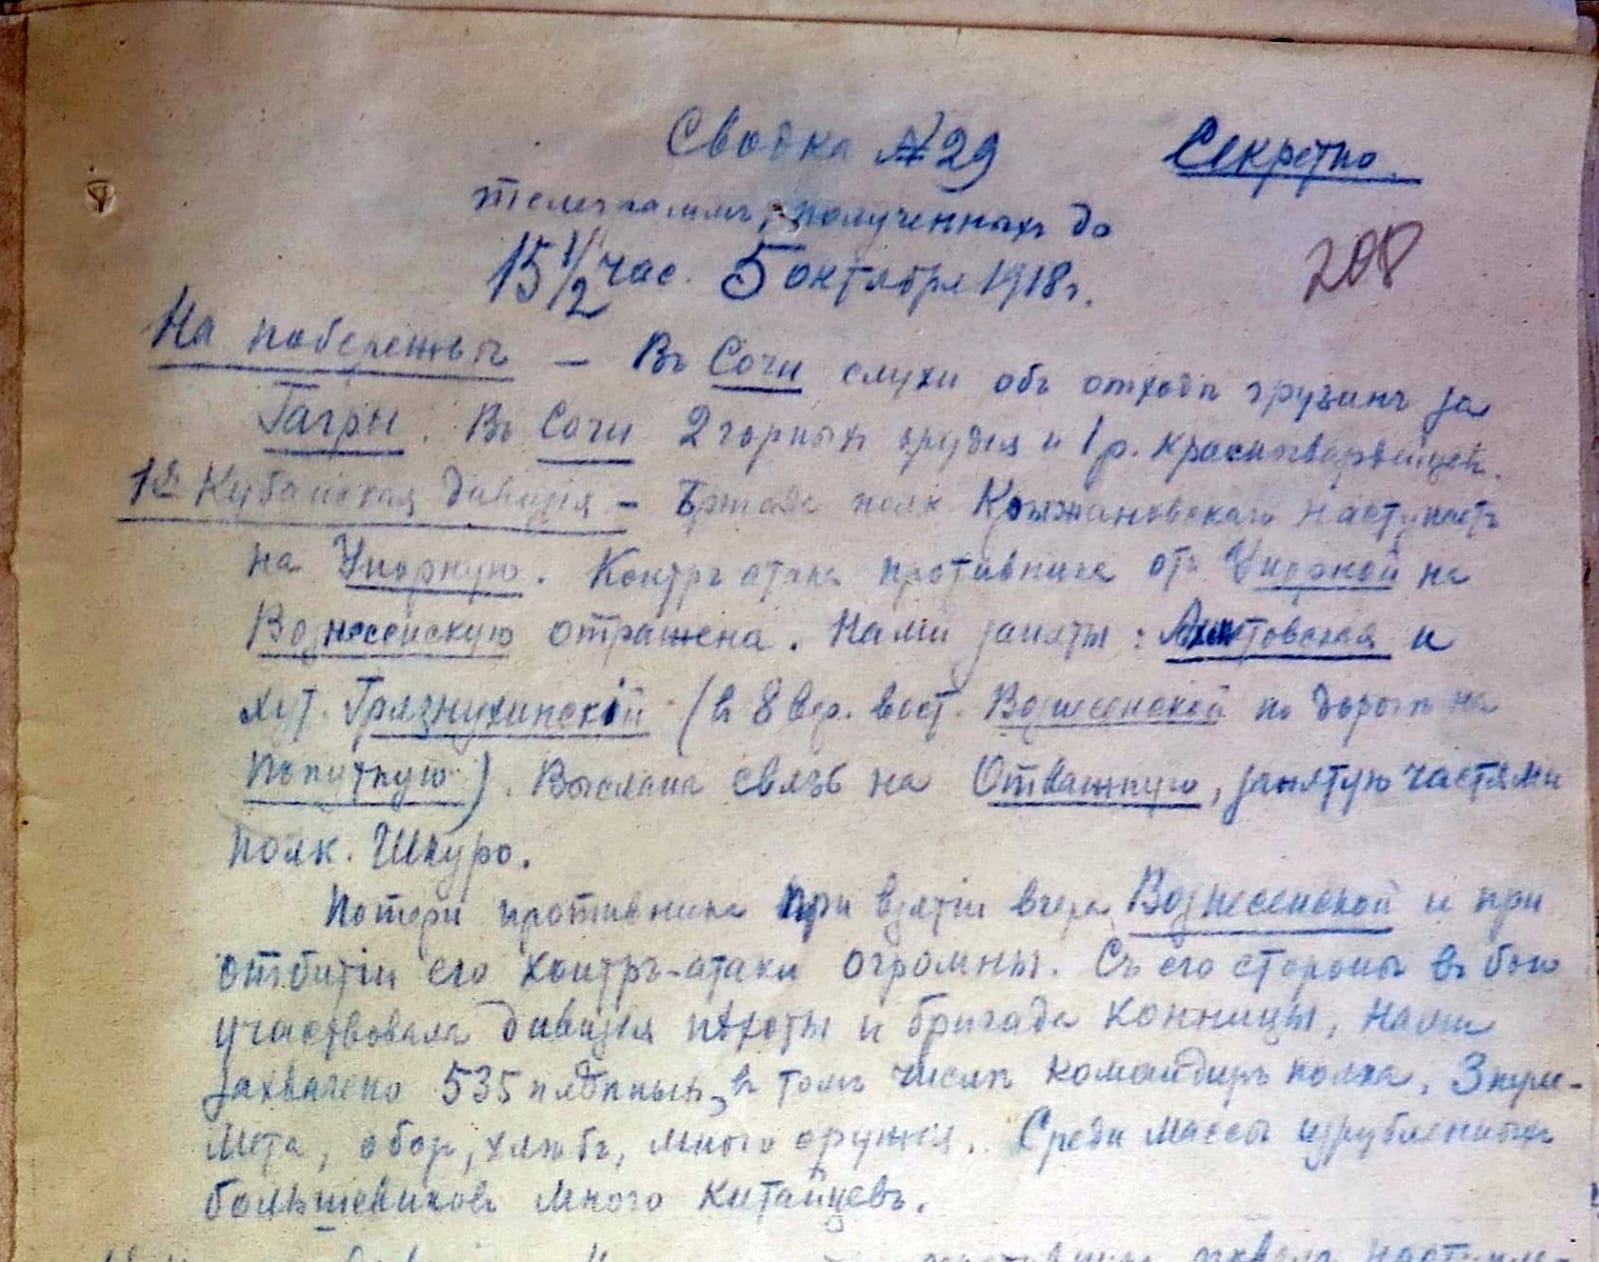 Сводка №29 Секретно.
телеграммъ, полученныхъ до
15 1/2 час. 5 октября 1918г. 208
На побережьѣ — Въ Сочи слухи объ отходѣ грузинъ за
Гагры. Въ Сочи 2 горныхъ орудія и 1 р. красногвардейцевъ.
1я Кубанская дивизія – полк Крыжановскаго наступаетъ
на Упорную. Контръ атака противника отъ Упорной на
Вознесенскую отражена. Нами заняты: Ахметовская и
хут. Грязнухинскій (въ 8 вер. вост. Вознесенской по дорогѣ на
Попутную). Выслана связь на Отважную, занятую частями
полк. Шкуро.
Потери противника при взятіи вчера Вознесенской и при
отбитіи его контръ-атаки огромны. Съ его стороны въ бою
участвовала дивизія пѣхоты и бригада конницы, нами
захвачено 535 плѣнныхъ, въ томъ числѣ командиръ полка, 3 пуле-
мета, обоз, хлѣбъ, много оружія. Среди массы изрубленныхъ
большевиковъ много китайцевъ.